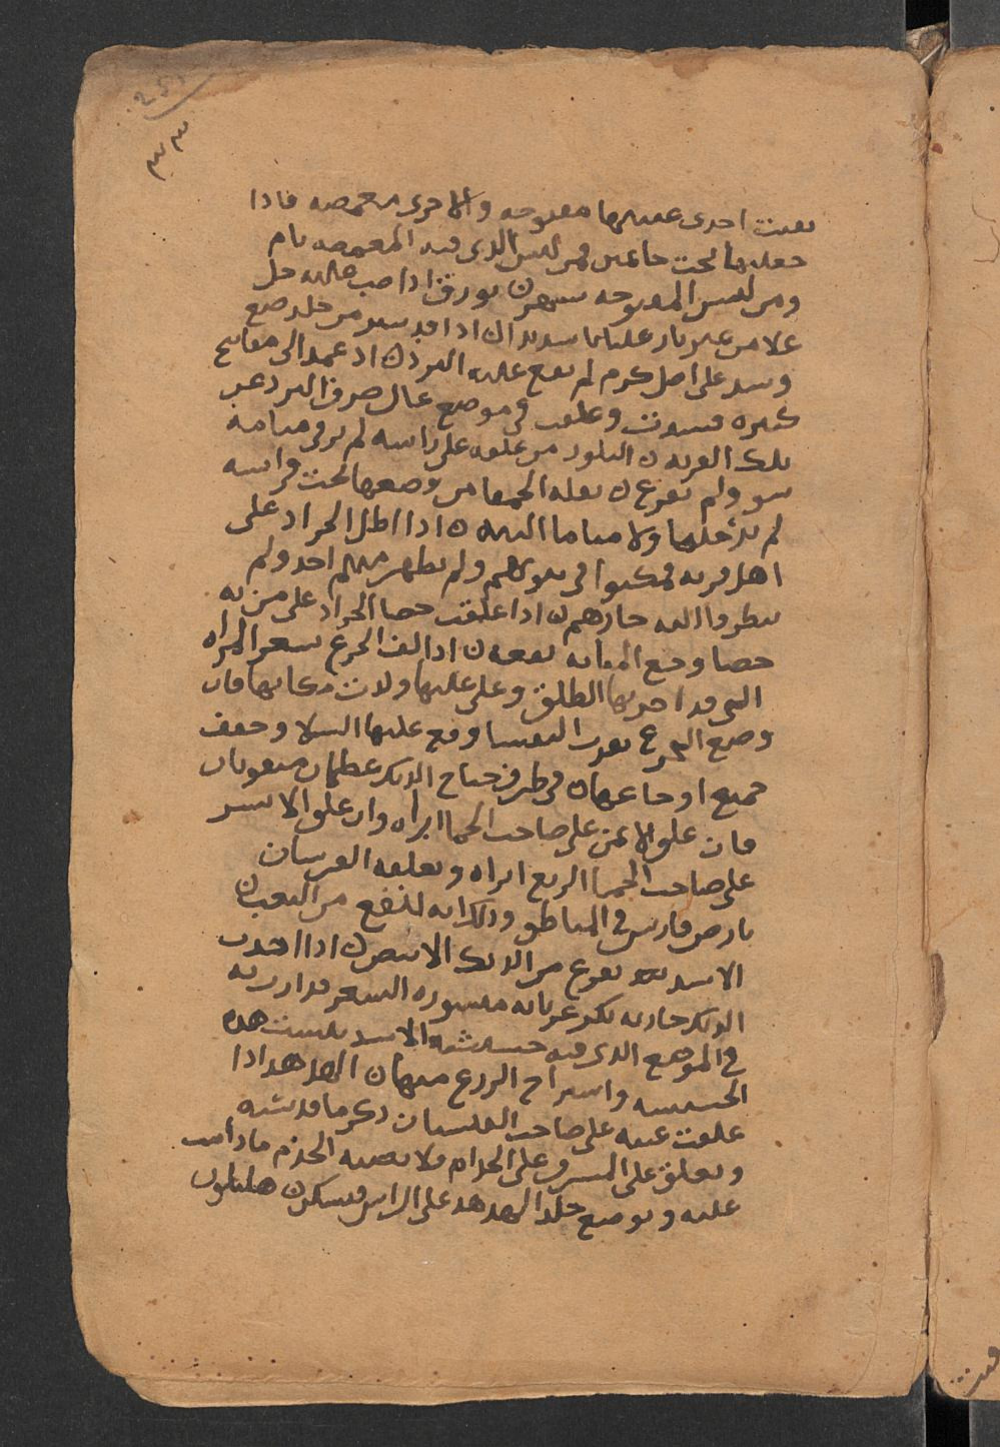 ٣٣
بقيت احدى عينيها مفتوحه والاخرى مغمضه فاذا
جعلتها تحت خاتمين فمن لبس الذي فيه المغمضه نام
ومن لبس المفتوحه سهر ن بورق اذا صب عليه خل
غلا من غير نار غليانا شديدا ن اذا قد سير من جلد ضبع
وشد على اصل كرم لم يقع عليه البرد ن اذ عمد الى مفاتيح
كثيره فشدت وعلقت في موضع عال صرف البرد عن
تلك القريه ن البلور من علقه على راسه لم ير في منامه
سو ولم يفزع ن بقله الحمقا من وضعها تحت فراسه
لم ير حلما ولا مناما البته ن اذا اطل الجراد على
اهل قريه فمكثوا في بيوتهم ولم يظهر منهم احد ولم
ينظروا اليه جازهم ن اذا علقت خصا الجراد على من به
خصا وجع المثانه نفعه ن اذا لف الجزع بشعر المراه
التي قد اضر بها الطلق وعلى عليها ولدت مكانها فان
وضع الجزع بقرب النفسا وقع عليها السلا وخفف
جميع اوجاعها ن في طرف جناح الديك عظمان مثقوبان
فان علق الايمن على صاحب الحما ابراه وان علق الايسر
على صاحب الحما الربع ابراه ويعلقه الفرسان
بارض فارس في المناطق وذلك انه لينفع من التعب ن
الاسد يفزع من الديك الابيض ن اذا اخذت
الديك جاريه بكر عريانه منشوره الشعر فدارت به
في الموضع الذي فيه حشيشه الاسد يبست هذه
الحشيشه واستراح الزرع منها ن الهدهد اذا
علقت عينه على صاحب النسيان ذكر ما قد نسيه
وتعلق على المشرف على الجذام فلا يصيبه الجذم ما دامت
عليه ويوضع جلد الهدهد على الراس فيسكن